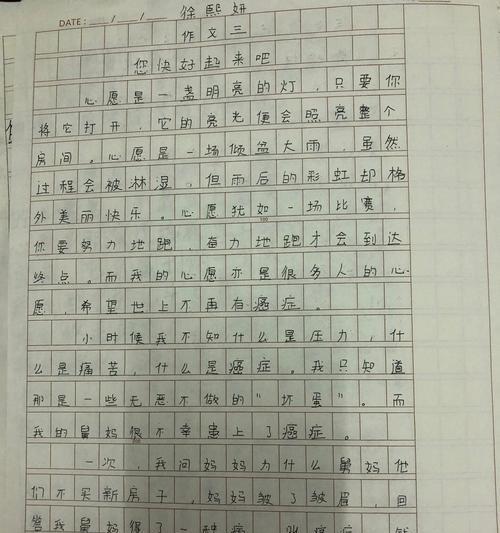 徐熙妍
DATE: / /
作文三
您快好起来吧
心愿是一盏明亮的灯,只要你
将它打开,它的亮光便会照亮整个
房间。心愿是一场倾盆大雨,虽然
过程会被淋湿,但雨后的彩虹却格
外美丽快乐。心愿犹如一场比赛,
你要努力地跑,奋力地跑才会到达
终点。而我的心愿亦是很多人的心
愿,希望世上不再有癌症。
小时候我不知什么是压力,什
么是痛苦,什么是癌症。我只知道
那是一些无恶不做的“坏蛋”。而
我的舅妈很不幸患上了癌症。
一次,我问妈妈为什么舅妈他
们不买新房子,妈妈皱了皱眉,回
答我舅妈得了一种病,叫癌症,然